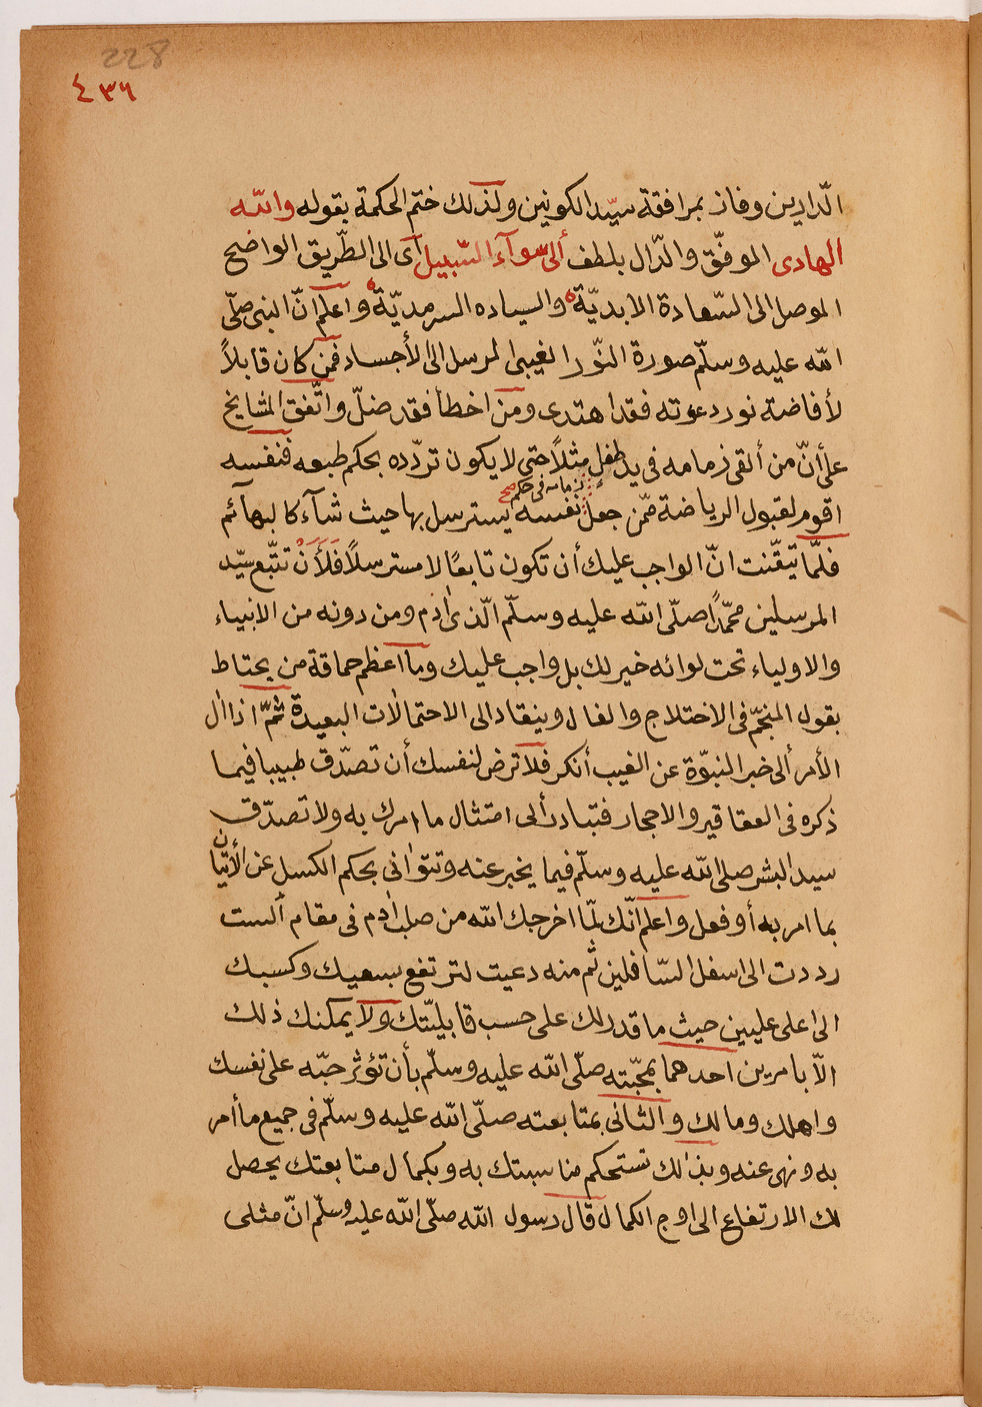 228
٤٣٦
الدّارين وفاز بمرافقة سيّد الكونين ولذلك ختم الحكمة بقوله والله
الهادى الموفّق والدّال بلطف ألى سوآء السّبيل أى الى الطّريق الواضح
الموصل الى السّعادة الابديّة والسياده السرمديّة واعلم انّ النبى صلّى
الله عليه وسلّم صورة النّور الغيبى المرسل الى الأجساد فمن كان قابلاً
لأفاضة نور دعوته فقد اهتدى ومن اخطأ فقد ضلّ واتّفق المشايخ
على أنّ من ألقى زمامه فى يد طفلٍ مثلاً حتى لا يكون تردّده بحكم طبعه فنفسه
زمامه فى حكم صح
اقوم لقبول الرياضة ممّن جعل نفسه يسترسل بها حيث شآء كالبهآئم
فلمّا تيقّنت انّ الواجب عليك أن تكون تابعًا لا مسترسلاً فلأن تتّبع سيّد
المرسلين محمّدًا صلّى الله عليه وسلّم الّذى اٰدم ومن دونه من الانبياء
والاولياء تحت لوائه خير لك بل واجب عليك وما اعظم حماقة من يحتاط
بقول المنجّم فى الاختلاج والفال وينقاد الى الاحتمالات البعيدة ثمّ اذا اٰل
الأمر ألى خبر النبوّة عن الغيب أنكر فلا ترض لنفسك أن تصدّق طبيبا فيما
ذكره فى العقاقير والاحجار فتبادر ألى امتثال ما امرك به ولا تصدّق
سيد البشر صلى الله عليه وسلّم فيما يخبر عنه وتتوانى بحكم الكسل عن الأتيان
بما امر به أو فعل واعلم انّك لمّا اخرجك الله من صلب اٰدم فى مقام ألست
رددت الى اسفل السّافلين ثم منه دعيت لترتفع بسعيك وكسبك
الى اعلى عليين حيث ما قدر لك على حسب قابليّتك ولا يمكنك ذلك
الاّ بامرين احدهما بمحبّته صلّى الله عليه وسلّم بأن تؤثر حبّه على نفسك
واهلك ومالك والثانى بمتابعته صلّى الله عليه وسلّم فى جميع ما أمر
به ونهى عنه وبذالك تستحكم مناسبتك به وبكمال متابعتك يحصل
لك الارتفاع الى اوج الكمال قال رسول الله صلّى الله عليه وسلّم انّ مثلى